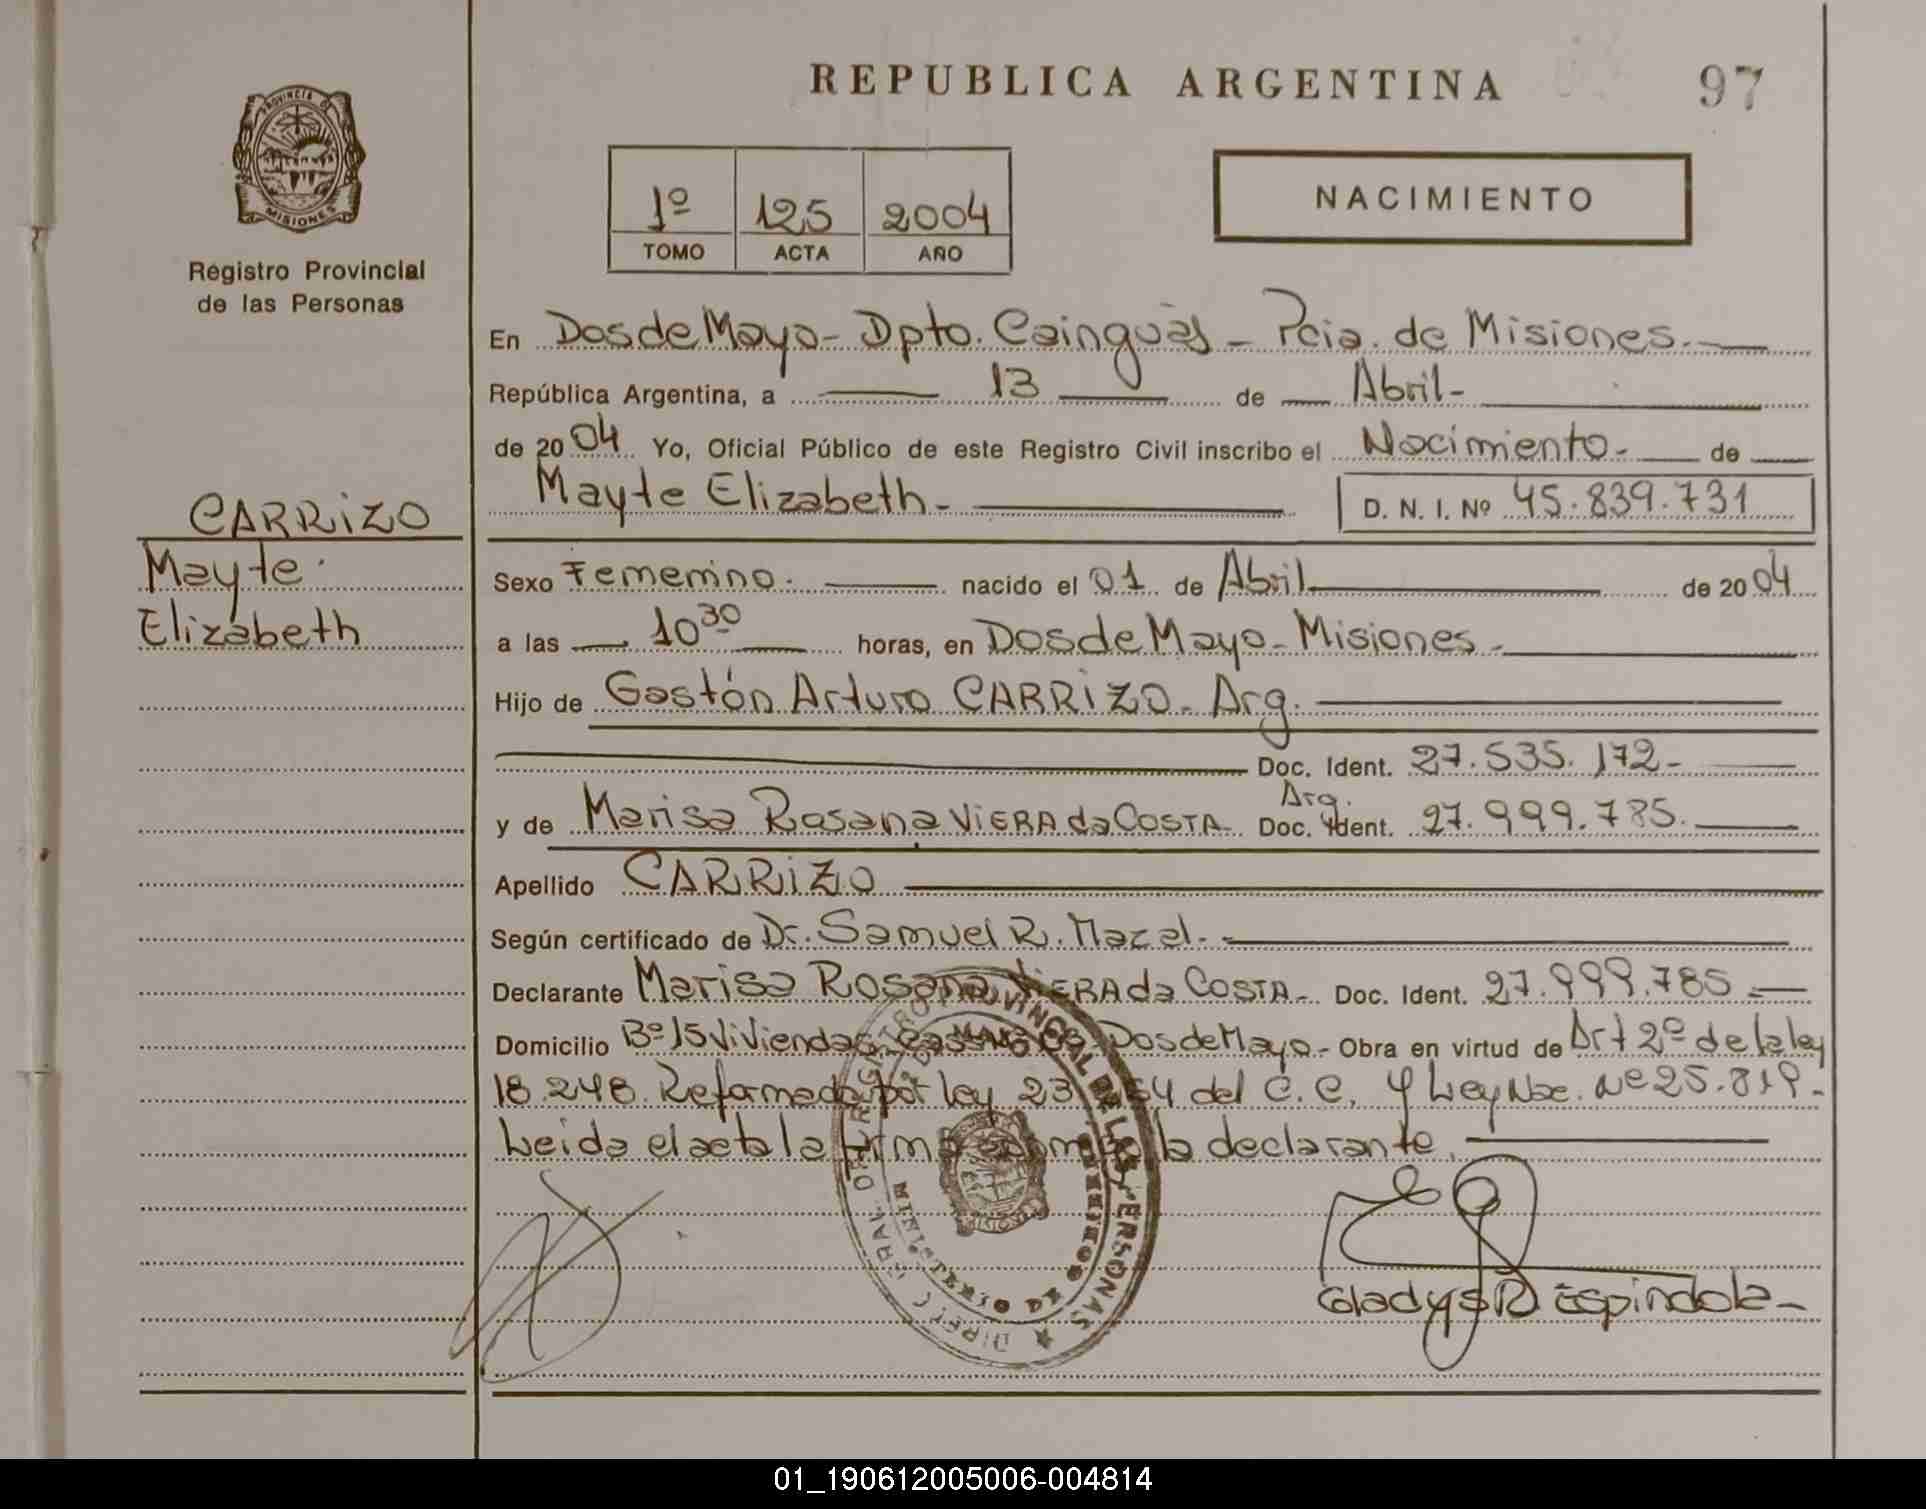 REPUBLICA ARGENTINA
97
PROVINCIA D
MISIONES
Registro Provincial
de las Personas
1º 125 2004
TOMO ACTA AÑO
NACIMIENTO
En Dos de Mayo - Dpto. Cainguàs - Pcia. de Misiones.
República Argentina, a 13 de Abril -
de 2004 Yo, Oficial Público de este Registro Civil inscribo el Nacimiento - de
Mayte Elizabeth - D. N. I. Nº 45.839.731
CARRIZO
Mayte
Elizabeth
Sexo Femenino. nacido el 01 de Abril de 2004
a las 10 30 horas, en Dos de Mayo - Misiones -
Hijo de Gastón Arturo CARRIZO - Arg.
Doc. Ident. 27.535.172 -
Arg.
y de Marisa Rosana VIERA da COSTA Doc. Ident. 27.999.785.
Apellido CARRIZO
Según certificado de Dr. Samuel R. Mazal. -
Declarante Marisa Rosana VIERA da COSTA - Doc. Ident. 27.999.785 -
Domicilio Bº 15 Viviendas Dos de Mayo - Obra en virtud de Art 2º de la ley
18.248 Reformada por ley 23 del C.C. y Ley Nac. Nº 25.819 -
Leida el acta la firma la declarante.
DE LAS PERSONAS
MINISTERIO DE
MISIONES
Gladys R Espindola -
01_190612005006-004814